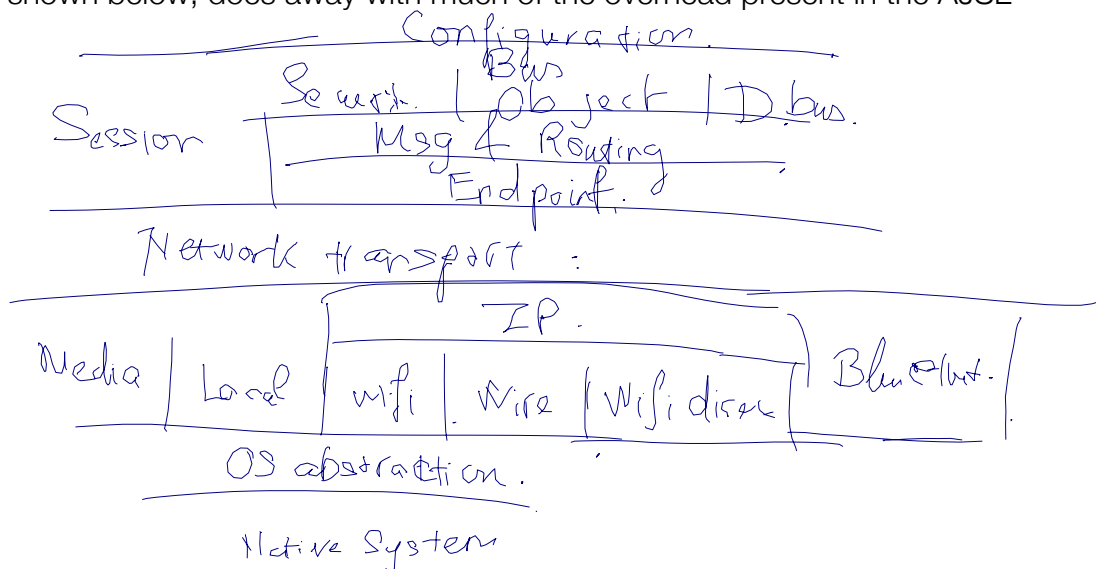 shown below, does away with much of the overhead present in the AJSL
Configuration.
Bus
Securit. | Object | D.bus.
Session
Msg & Routing
Endpoint.
Network transport :
IP.
Media | Local | wifi | Wire | Wifi direc | 
OS abstraction.
Native System